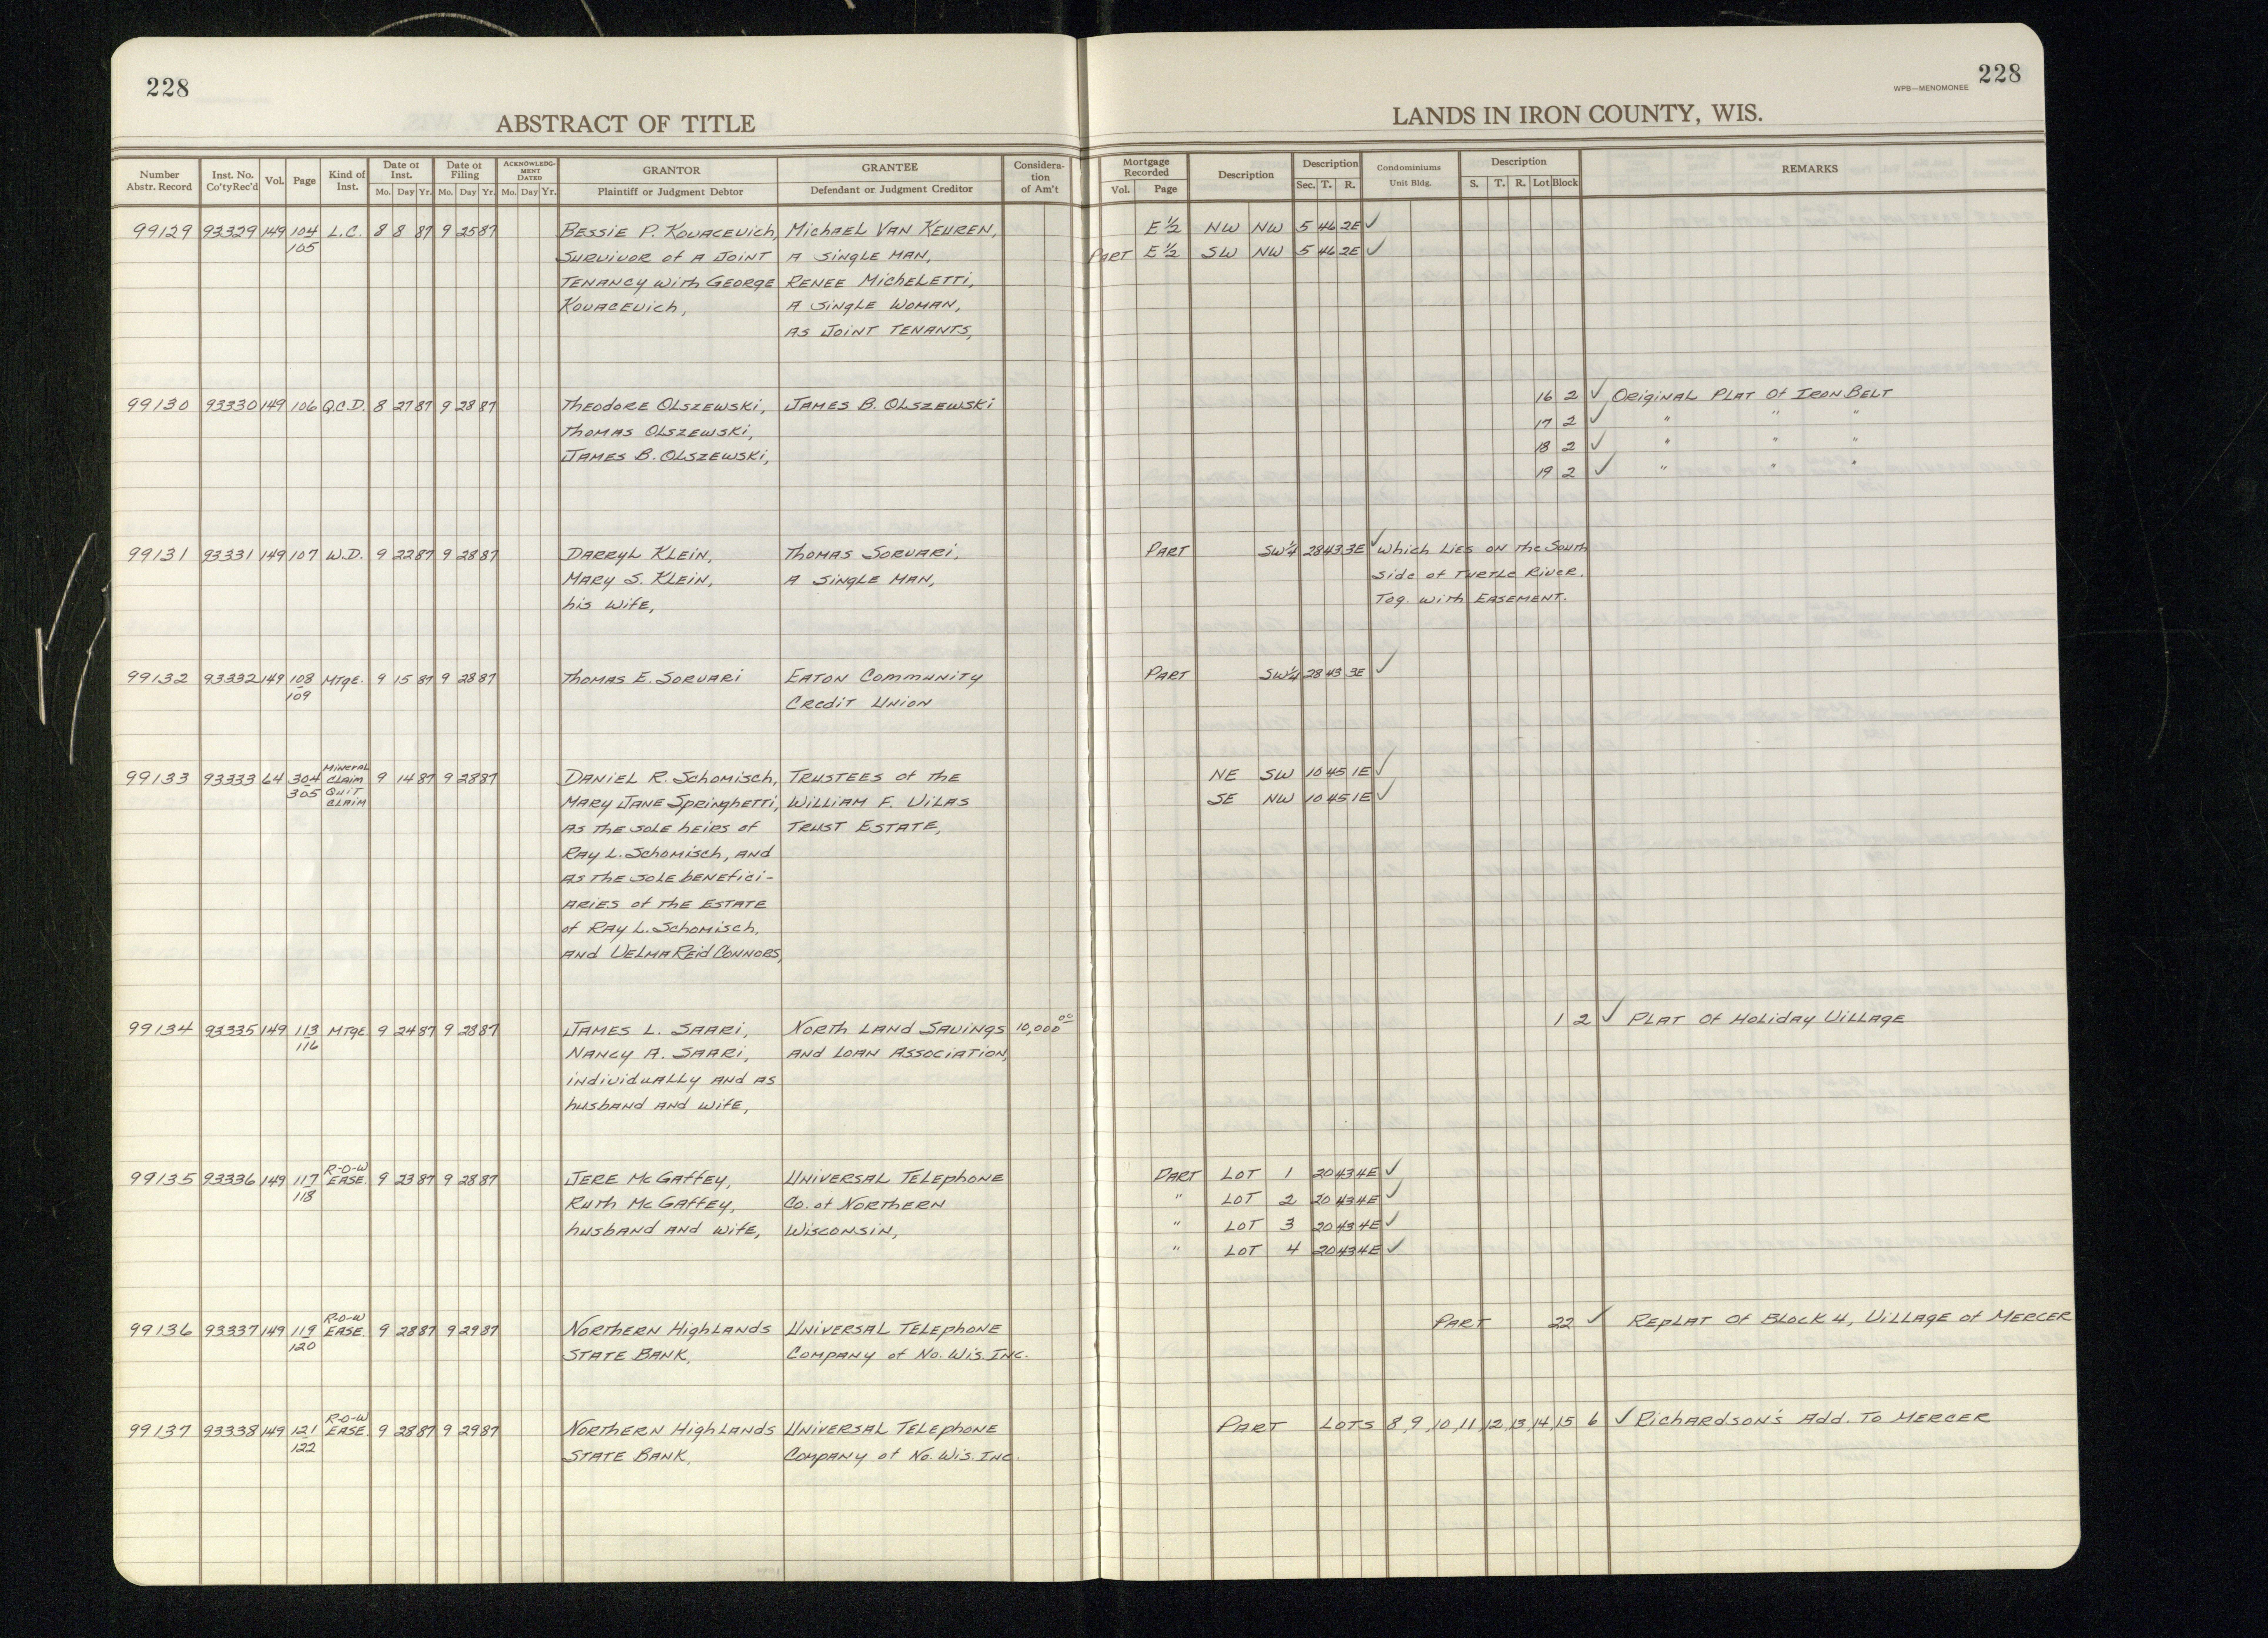 228
ABSTRACT OF TITLE
Number Abstr. Record
Inst. No. Co'tyRec'd
Vol.
Page
Kind of Inst.
Date of Inst.
Mo. Day Yr.
Date of Filing
Mo. Day Yr.
ACKNOWLEDG-MENT DATED
Mo. Day Yr.
GRANTOR
Plaintiff or Judgment Debtor
GRANTEE
Defendant or Judgment Creditor
Considera-tion of Am't
228
WPB—MENOMONEE
LANDS IN IRON COUNTY, WIS.
Mortgage Recorded
Vol. Page
Description
Description
Sec. T. R.
Condominiums
Unit Bldg.
Description
S. T. R. Lot Block
REMARKS
99129 93329 149 104 L.C. 8 8 87 9 25 87 Bessie P. Kovacevich, Michael Van Keuren, E½ NW NW 5 46 2E ✓
105 Survivor of a Joint A Single Man, Part E½ SW NW 5 46 2E ✓
Tenancy with George Renee Micheletti,
Kovacevich, A Single Woman,
As Joint Tenants,
99130 93330 149 106 Q.C.D. 8 27 87 9 28 87 Theodore Olszewski, James B. Olszewski 16 2 ✓ Original Plat of Iron Belt
Thomas Olszewski, 17 2 ✓ " " "
James B. Olszewski, 18 2 ✓ " " "
19 2 ✓ " " "
99131 93331 149 107 W.D. 9 22 87 9 28 87 Darryl Klein, Thomas Sorvari, Part SW¼ 28 43 3E ✓ which Lies on the South
Mary S. Klein, A Single Man, side of Turtle River.
his wife, Tog. with Easement.
99132 93332 149 108 Mtge. 9 15 87 9 28 87 Thomas E. Sorvari Eaton Community Part SW¼ 28 43 3E ✓
109 Credit Union
99133 93333 64 304 Mineral Claim Quit Claim 9 14 87 9 28 87 Daniel R. Schomisch, Trustees of the NE SW 10 45 1E ✓
305 Mary Jane Springhetti, William F. Vilas SE NW 10 45 1E ✓
As the sole heirs of Trust Estate,
Ray L. Schomisch, and
As the sole benefici-
aries of the Estate
of Ray L. Schomisch,
and Velma Reid Connors,
99134 93335 149 113 Mtge. 9 24 87 9 28 87 James L. Saari, North Land Savings 10,000 00 1 2 ✓ Plat of Holiday Village
116 Nancy A. Saari, and Loan Association,
individually and as
husband and wife,
99135 93336 149 117 R-O-W Ease. 9 23 87 9 28 87 Jere McGaffey, Universal Telephone Part Lot 1 20 43 4E ✓
118 Ruth McGaffey, Co. of Northern " Lot 2 20 43 4E ✓
husband and wife, Wisconsin, " Lot 3 20 43 4E ✓
" Lot 4 20 43 4E ✓
99136 93337 149 119 R-O-W Ease. 9 28 87 9 29 87 Northern Highlands Universal Telephone Part 22 ✓ Replat of Block 4, Village of Mercer
120 State Bank, Company of No. Wis. Inc.
99137 93338 149 121 R-O-W Ease. 9 28 87 9 29 87 Northern Highlands Universal Telephone Part Lots 8,9,10,11,12,13,14,15 6 ✓ Richardson's Add. To Mercer
122 State Bank, Company of No. Wis. Inc.